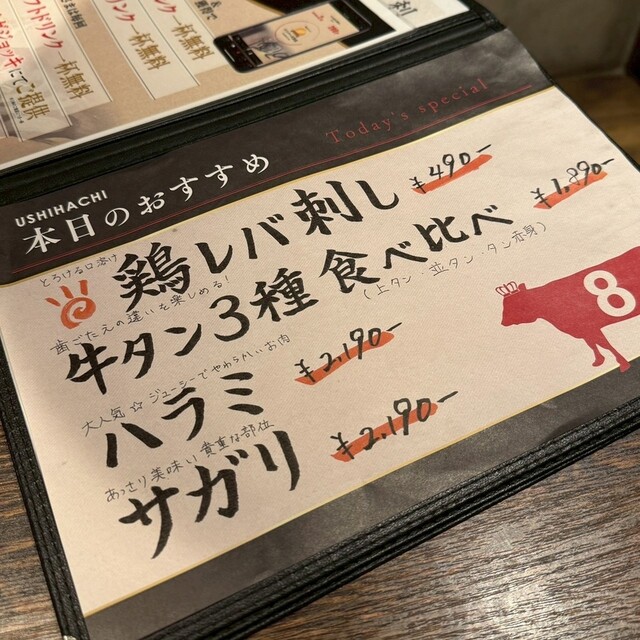 フトドリンク 一杯無料
ドリンク 一杯無料
ジョッキにてご提供
USHIHACHI
本日のおすすめ
Today's special
とろける口溶け
鶏レバ刺し ¥490-
歯ごたえの違いを楽しめる!
牛タン3種 食べ比べ ¥1,890-
(上タン・並タン・タン赤身)
大人気☆ジューシーでやわらかいお肉
ハラミ ¥2,190-
あっさり美味い貴重な部位
サガリ ¥2,190-
8